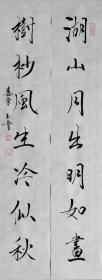 湖山月出明如畫
樹杪風生冷似秋